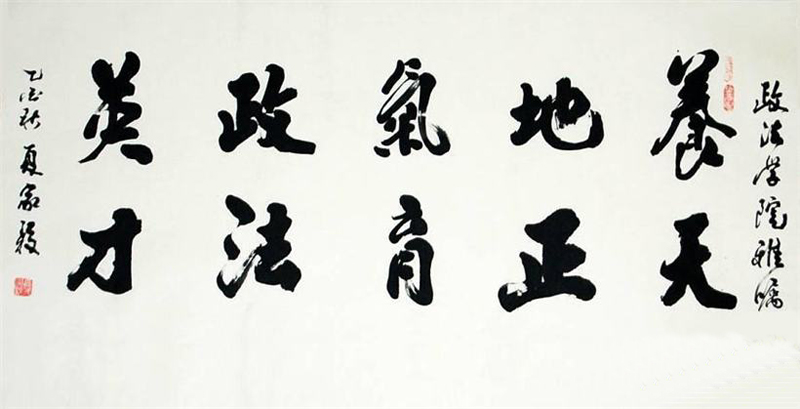 政法学院雅嘱
養天
地正
氣育
政法
英才
乙酉秋 夏家骏